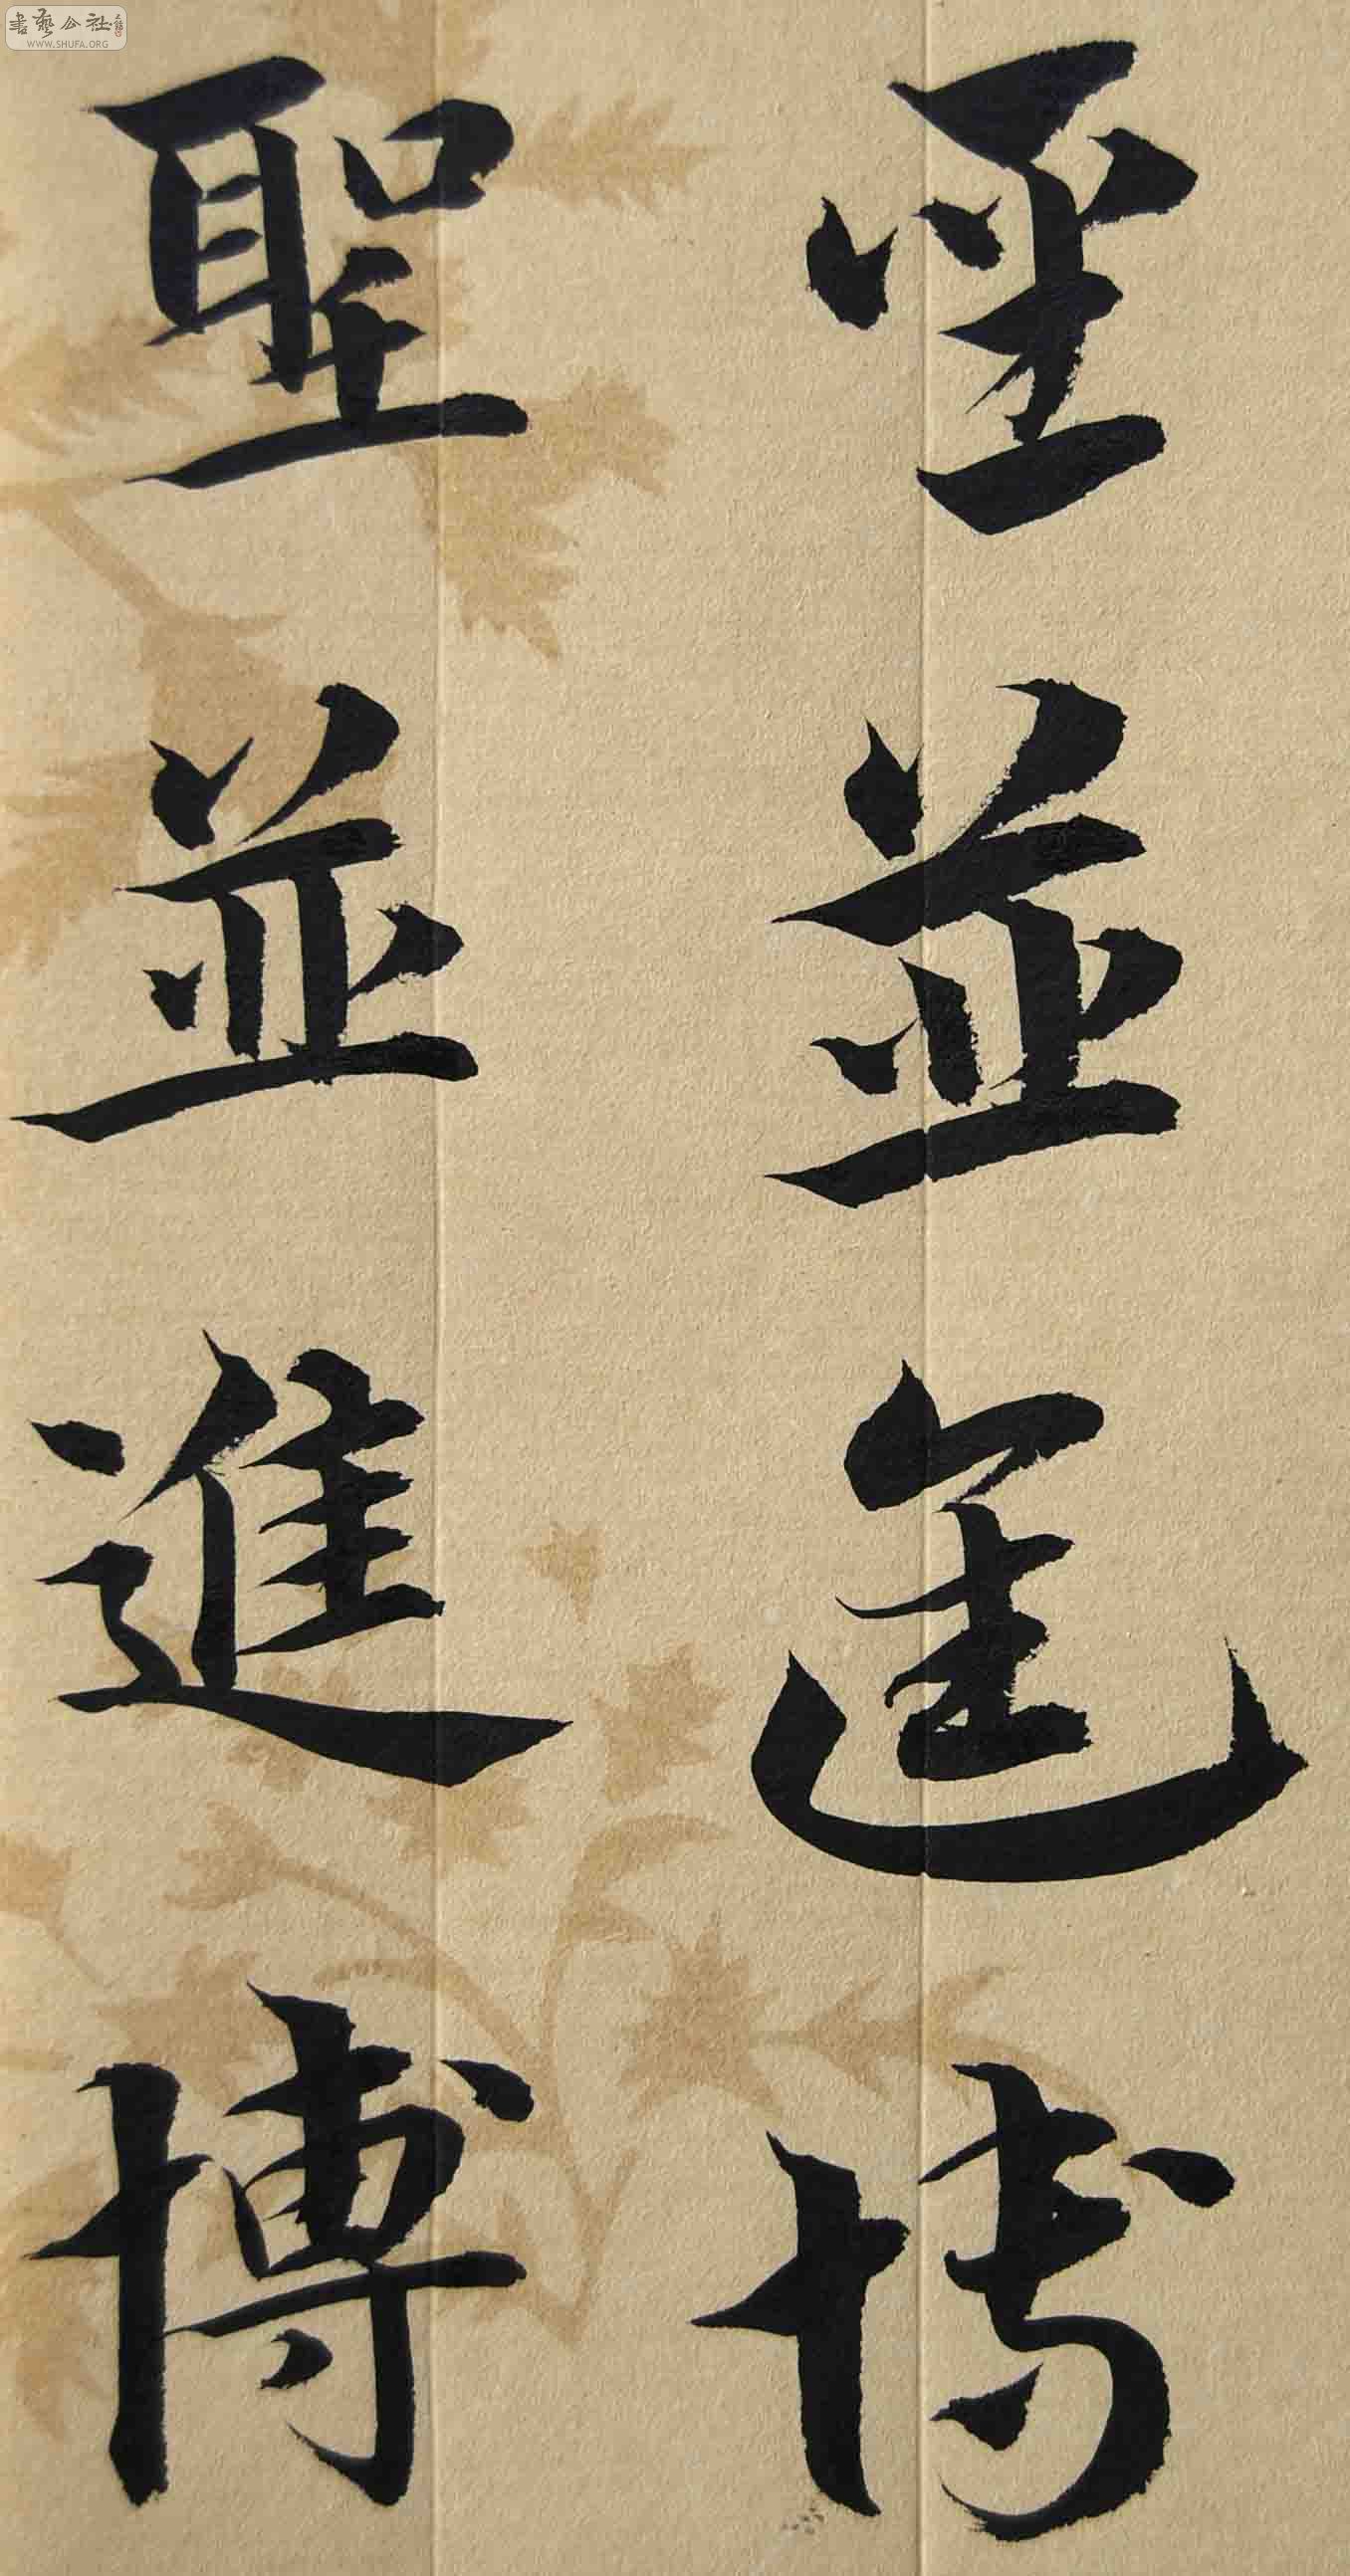 聖並進博
聖並進博
書藝公社
WWW.SHUFA.ORG